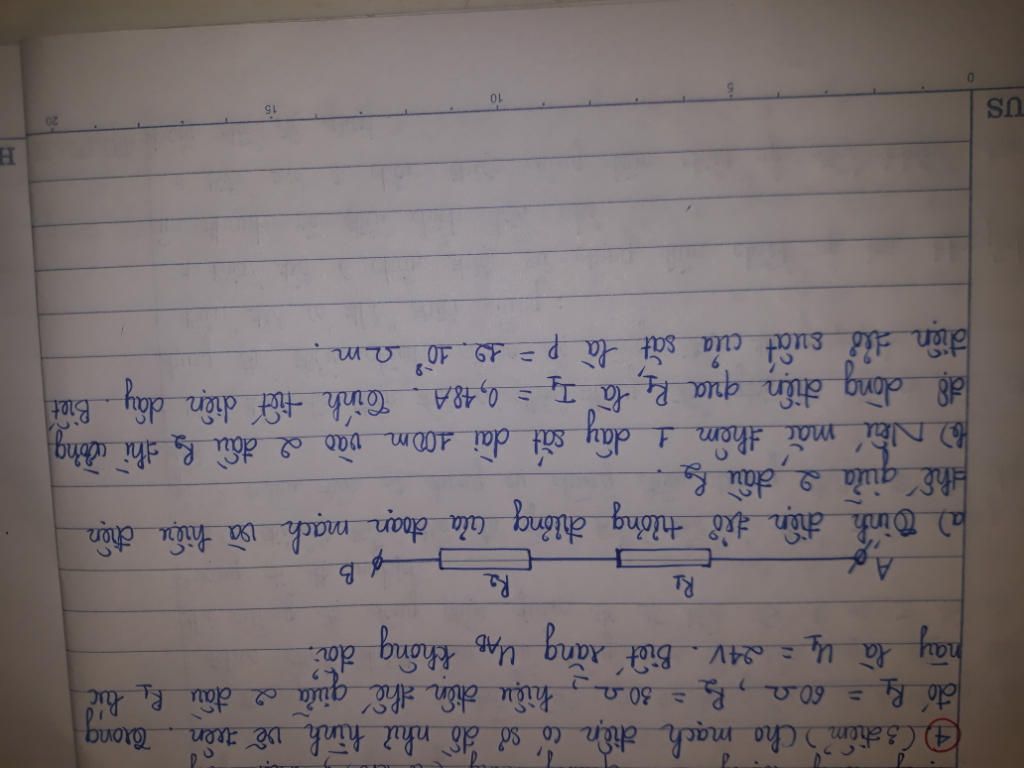 ④ (3 điểm) Cho mạch điện có sơ đồ như hình vẽ trên. Trong
đó R₁ = 60Ω, R₂ = 30Ω, hiệu điện thế giữa 2 đầu R₁ lúc
này là U₁ = 24V. Biết rằng U_AB không đổi.
A R₁ R₂ B
a) Tính điện trở tương đương của đoạn mạch và hiệu điện
thế giữa 2 đầu R₂.
b) Nếu mắc thêm 1 dây sắt dài 100m vào 2 đầu R₂ thì cường
độ dòng điện qua R₁ là I₁ = 0,48A. Tính tiết diện dây. Biết
điện trở suất của sắt là ρ = 12.10⁻⁸ Ωm.
US 0 5 10 15 20 H